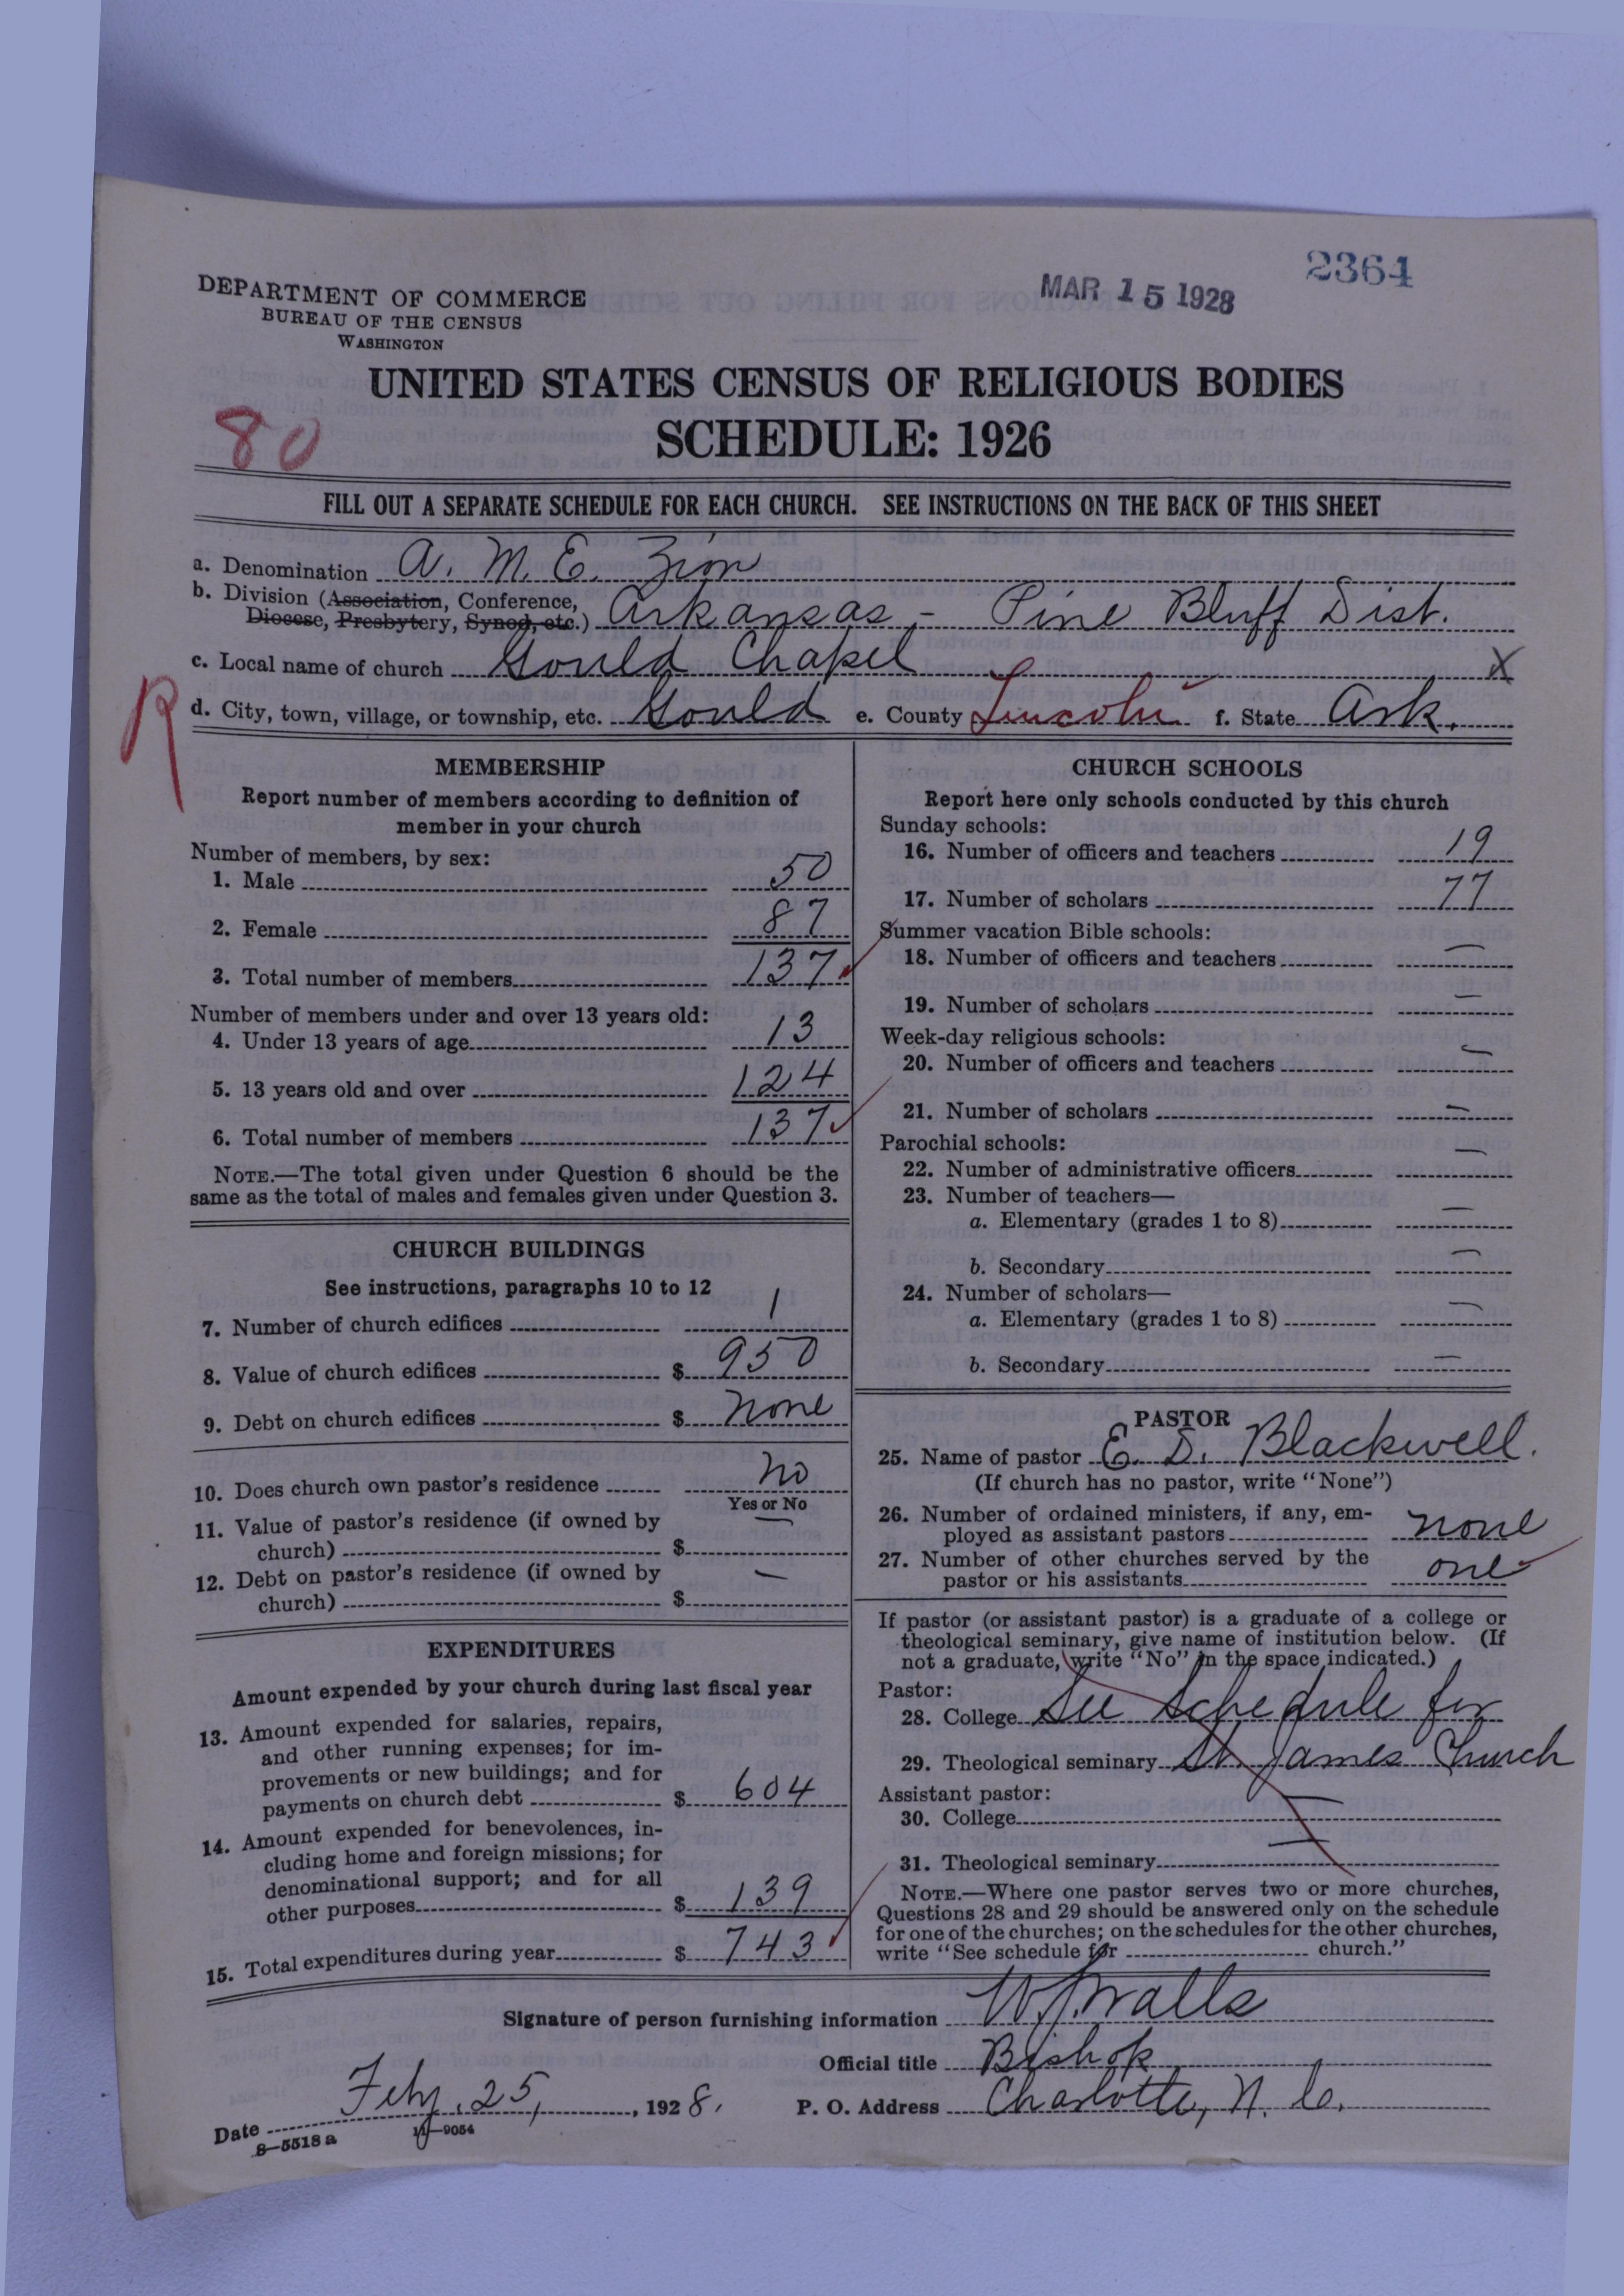 2364
MAR 15 1928
DEPARTMENT OF COMMERCE
BUREAU OF THE CENSUS
WASHINGTON
UNITED STATES CENSUS OF RELIGIOUS BODIES
SCHEDULE: 1926
80
FILL OUT A SEPARATE SCHEDULE FOR EACH CHURCH. SEE INSTRUCTIONS ON THE BACK OF THIS SHEET
a. Denomination A. M. E. Zion
b. Division (Association, Conference,
Diocese, Presbytery, Synod, etc.) Arkansas - Pine Bluff Dist.
c. Local name of church Gould Chapel X
R
d. City, town, village, or township, etc. Gould e. County Lincoln f. State Ark.
MEMBERSHIP
Report number of members according to definition of
member in your church
Number of members, by sex:
1. Male 50
2. Female 87
3. Total number of members 137
Number of members under and over 13 years old:
4. Under 13 years of age 13
5. 13 years old and over 124
6. Total number of members 137
NOTE.—The total given under Question 6 should be the
same as the total of males and females given under Question 3.
CHURCH BUILDINGS
See instructions, paragraphs 10 to 12
7. Number of church edifices 1
8. Value of church edifices $ 950
9. Debt on church edifices $ none
10. Does church own pastor's residence no
Yes or No
11. Value of pastor's residence (if owned by
church) $ —
12. Debt on pastor's residence (if owned by
church) $ —
EXPENDITURES
Amount expended by your church during last fiscal year
13. Amount expended for salaries, repairs,
and other running expenses; for im-
provements or new buildings; and for
payments on church debt $ 604
14. Amount expended for benevolences, in-
cluding home and foreign missions; for
denominational support; and for all
other purposes $ 139
15. Total expenditures during year $ 743
CHURCH SCHOOLS
Report here only schools conducted by this church
Sunday schools:
16. Number of officers and teachers 19
17. Number of scholars 77
Summer vacation Bible schools:
18. Number of officers and teachers —
19. Number of scholars —
Week-day religious schools:
20. Number of officers and teachers —
21. Number of scholars —
Parochial schools:
22. Number of administrative officers —
23. Number of teachers—
a. Elementary (grades 1 to 8) —
b. Secondary —
24. Number of scholars—
a. Elementary (grades 1 to 8) —
b. Secondary —
PASTOR
25. Name of pastor E. D. Blackwell.
(If church has no pastor, write "None")
26. Number of ordained ministers, if any, em-
ployed as assistant pastors none
27. Number of other churches served by the
pastor or his assistants one
If pastor (or assistant pastor) is a graduate of a college or
theological seminary, give name of institution below. (If
not a graduate, write "No" in the space indicated.)
Pastor:
28. College See Schedule for
29. Theological seminary St. James Church
Assistant pastor:
30. College —
31. Theological seminary —
NOTE.—Where one pastor serves two or more churches,
Questions 28 and 29 should be answered only on the schedule
for one of the churches; on the schedules for the other churches,
write "See schedule for church."
Signature of person furnishing information W. J. Walls
Official title Bishop
Date Feby. 25, 1928. P. O. Address Charlotte, N. C.
8—5518 a 11—9054